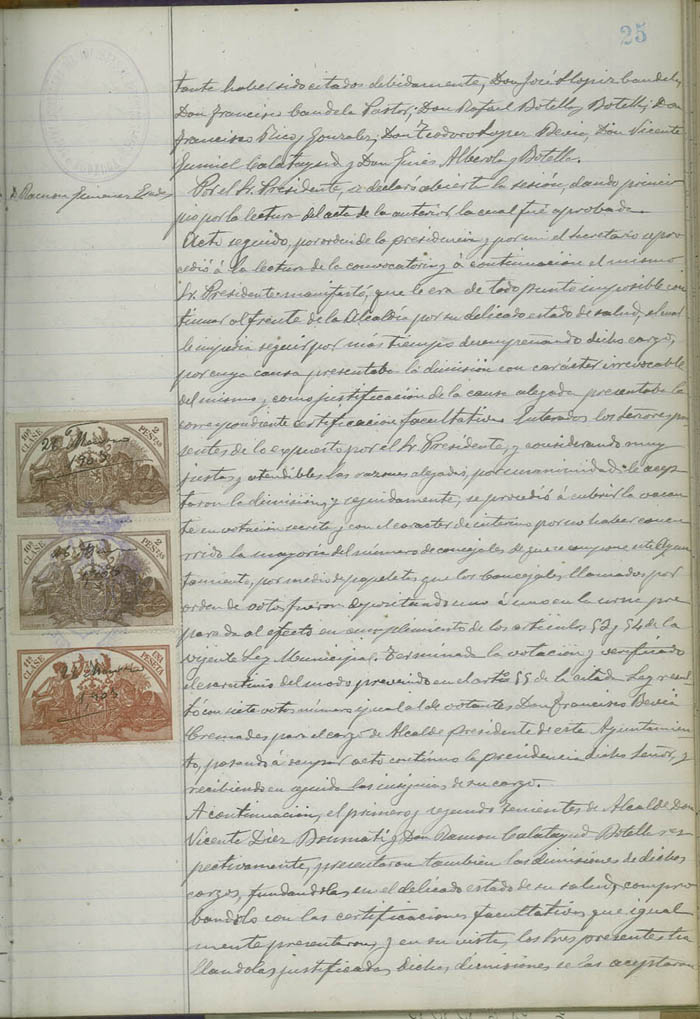 25
tante haber sido citados debidamente, Don José Lopez Candela,
Don Francisco Candela Pastor; Don Rafael Botella Botella; Don
Francisco Rico y Gonzalez; Don Teodoro Lopez Devia, Don Vicente
Jumiel Calatayud y Don Ginés Alberola y Botella.
D. Ramon
Por el Sr. Presidente, se declaró abierta la sesión, dando princi-
pio por la lectura del acta de la anterior la cual fué aprobada.
Acto seguido, por orden de la presidencia y por mi el Secretario se pro-
cedió á la lectura de la convocatoria y á continuación el mismo
Sr. Presidente manifestó, que le era de todo punto imposible con-
tinuar al frente de la Alcaldía por su delicado estado de salud, el cual
le impedia seguir por mas tiempo desempeñando dicho cargo,
por cuya causa presentaba la dimisión con carácter irrevocable
del mismo y como justificación de la causa alegada presentaba la
correspondiente certificación facultativa. Enterados los señores pre-
sentes de lo expuesto por el Sr. Presidente, y considerando muy
justas y atendibles las razones alegadas, por unanimidad le acep-
taron la dimisión; y seguidamente, se procedió á cubrir la vacan-
te en votación secreta y con el caracter de interino por no haber concu-
rrido la mayoría del número de concejales de que se compone este Ayun-
tamiento, por medio de papeletas que los Concejales llamados por
orden de votos fueron depositando uno á uno en la urna pre-
parada al efecto en cumplimiento de los articulos 52 y 54 de la
vijente Ley Municipal. Terminada la votación y verificado
el escrutinio del modo prevenido en el artº 55 de la citada Ley resul-
tó con siete votos número igual al de votantes Don Francisco Devia
Cremades para el cargo de Alcalde presidente de este Ayuntamien-
to, pasando á ocupar acto continuo la presidencia dicho Señor, y
recibiendo en seguida las insignias de su cargo.
A continuación, el primero y segundo tenientes de Alcalde Don
Vicente Diez y Don Ramon Calatayud Botella res-
pectivamente, presentaron tambien las dimisiones de dichos
cargos, fundandolas en el delicado estado de su salud, compro-
bandolo con las certificaciones facultativas que igual-
mente presentaron, y en su vista, los Sres presentes ha-
llandolas justificadas dichas dimisiones se las aceptaron
10ª CLASE
2 PESETAS
1903
10ª CLASE
2 PESETAS
1903
11ª CLASE
UNA PESETA
1903